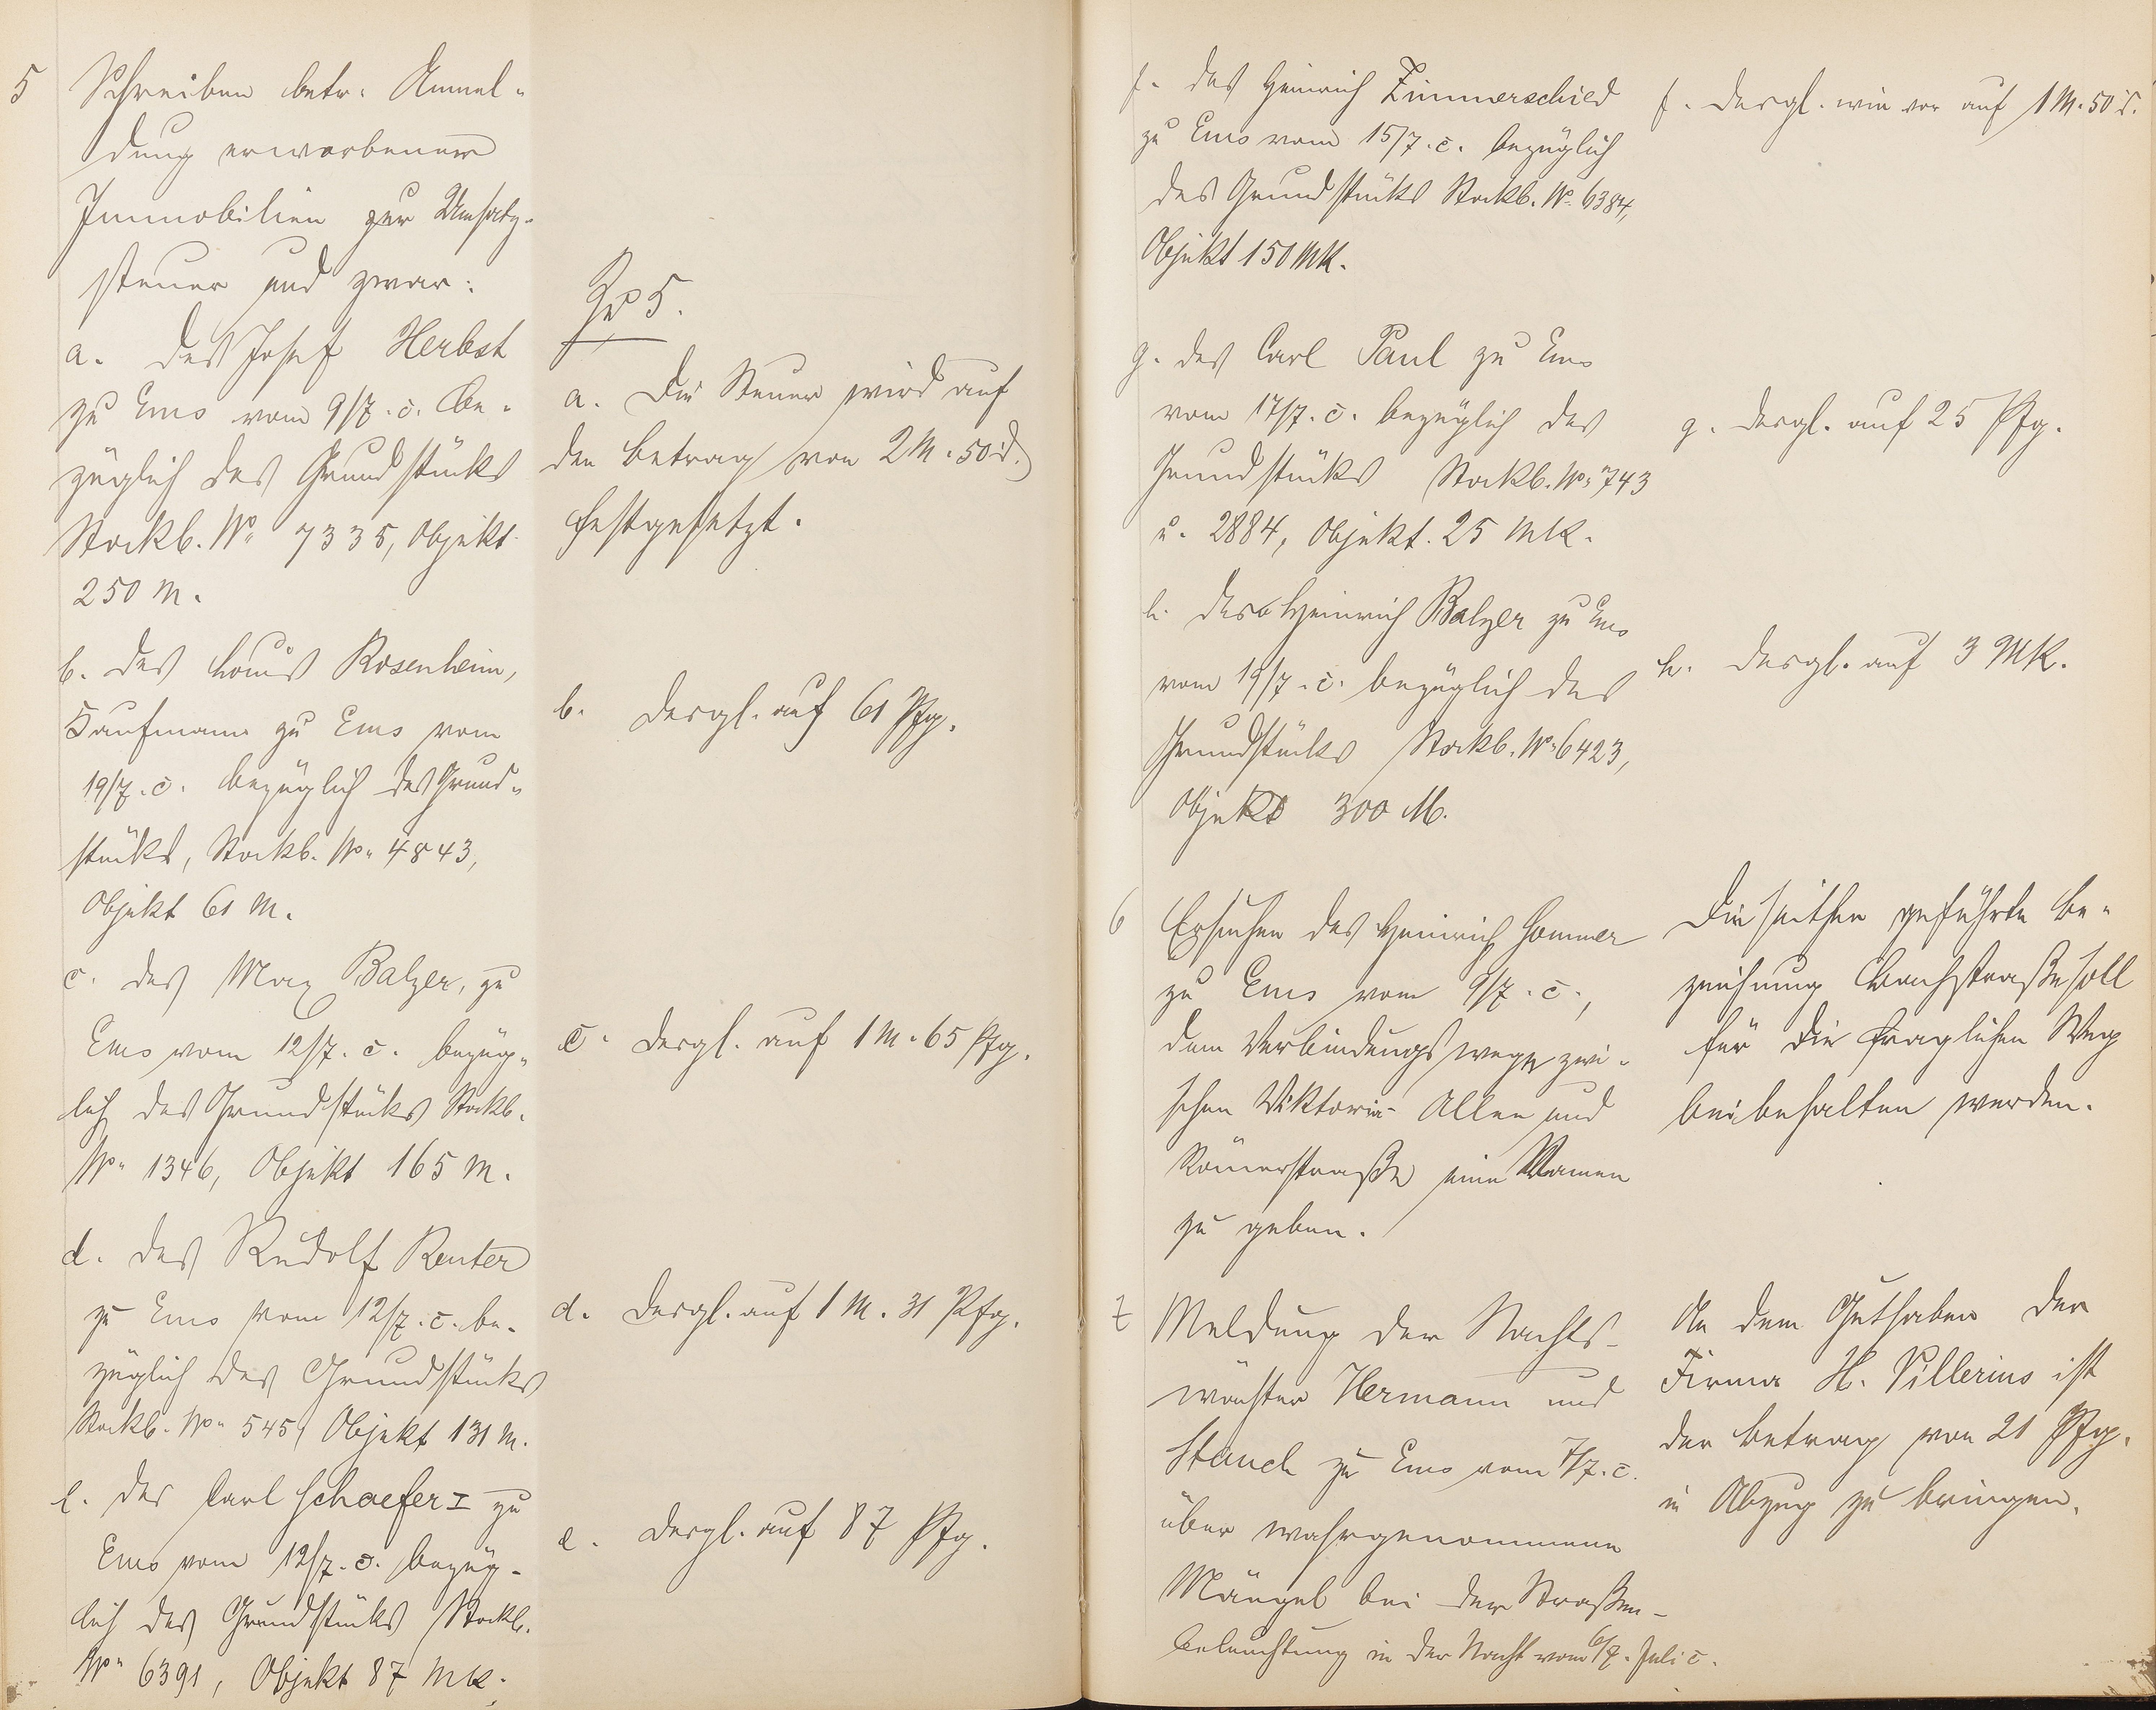 5 Schreiben betr. Anmel-
dung erworbener
Immobilien zur Umsatz-
steuer und zwar:
a. des Josef Herbst
zu Ems vom 9/7. c. be-
züglich des Grundstücks
Stockb. No 7335, Objekt
250 M.
b. des Louis Rosenheim,
Kaufmann zu Ems vom
19/7. c. bezüglich des Grund-
stücks, Stockb. No 4843,
Objekt 61 M.
c. des Max Balzer, zu
Ems vom 12/7. c. bezüg-
lich des Grundstücks Stockb.
No 1346, Objekt 165 M.
d. des Rudolf Reuter
zu Ems vom 12/7. c. be-
züglich des Grundstücks
Stockb. No 545, Objekt 131 M.
e. des Carl Schaefer I zu
Ems vom 12/7. c. bezüg-
lich des Grundstücks Stockb.
No 6391, Objekt 87 Mk.
Zu 5.
a. Die Steuer wird auf
den Betrag von 2 M. 50 d.
festgesetzt.
b. desgl. auf 61 Pfg.
c. desgl. auf 1 M. 65 Pfg.
d. desgl. auf 1 M. 31 Pfg.
e. desgl. auf 87 Pfg.
f. des Heinrich Zimmerschied
zu Ems vom 15/7. c. bezüglich
des Grundstücks Stockb. No 6384,
Objekt 150 Mk.
g. des Carl Paul zu Ems
vom 17/7. c. bezüglich des
Grundstücks Stockb. No 743
u. 2884, Objekt. 25 Mk.
h. des Heinrich Balzer zu Ems
vom 19/7. c. bezüglich des
Grundstücks Stockb. No 6423,
Objekt 300 M.
6 Ersuchen des Heinrich Hommer
zu Ems vom 9/7. c.,
dem Verbindungswege zwi-
schen Viktoria-Allee und
Römerstraße eine Namen
zu geben.
7 Meldung der Nachts-
wächter Hermann und
Stauch zu Ems vom 7/7. c.
über wahrgenommene
Mängel bei der Straßen-
beleuchtung in der Nacht vom 6/7. Juli c.
f. desgl. wie vor auf 1 M. 50 d.
g. desgl. auf 25 Pfg.
h. desgl. auf 3 Mk.
Die seither geführte Be-
zeichnung Bachstraße soll
für die fraglichen Weg
beibehalten werden.
An dem Guthaben der
Firma H. Villerius ist
der Betrag von 21 Pfg.
in Abzug zu bringen.